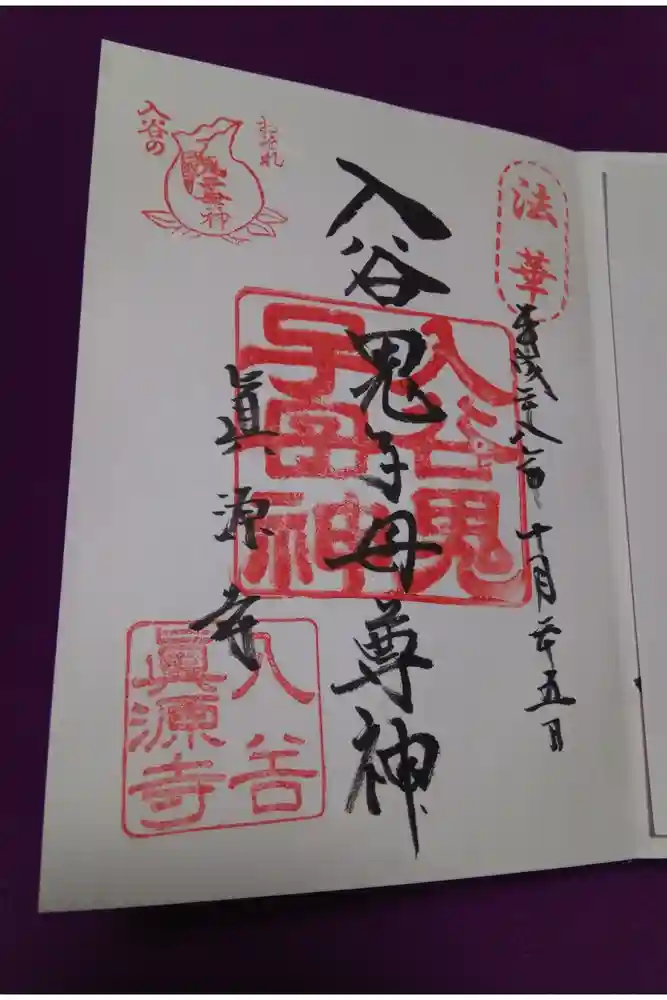 法華
平成二十八年 十月二十五日
入谷鬼子母尊神
入谷鬼
子母神
眞源寺
入谷
眞源寺
おそれ
入谷の
鬼子母神